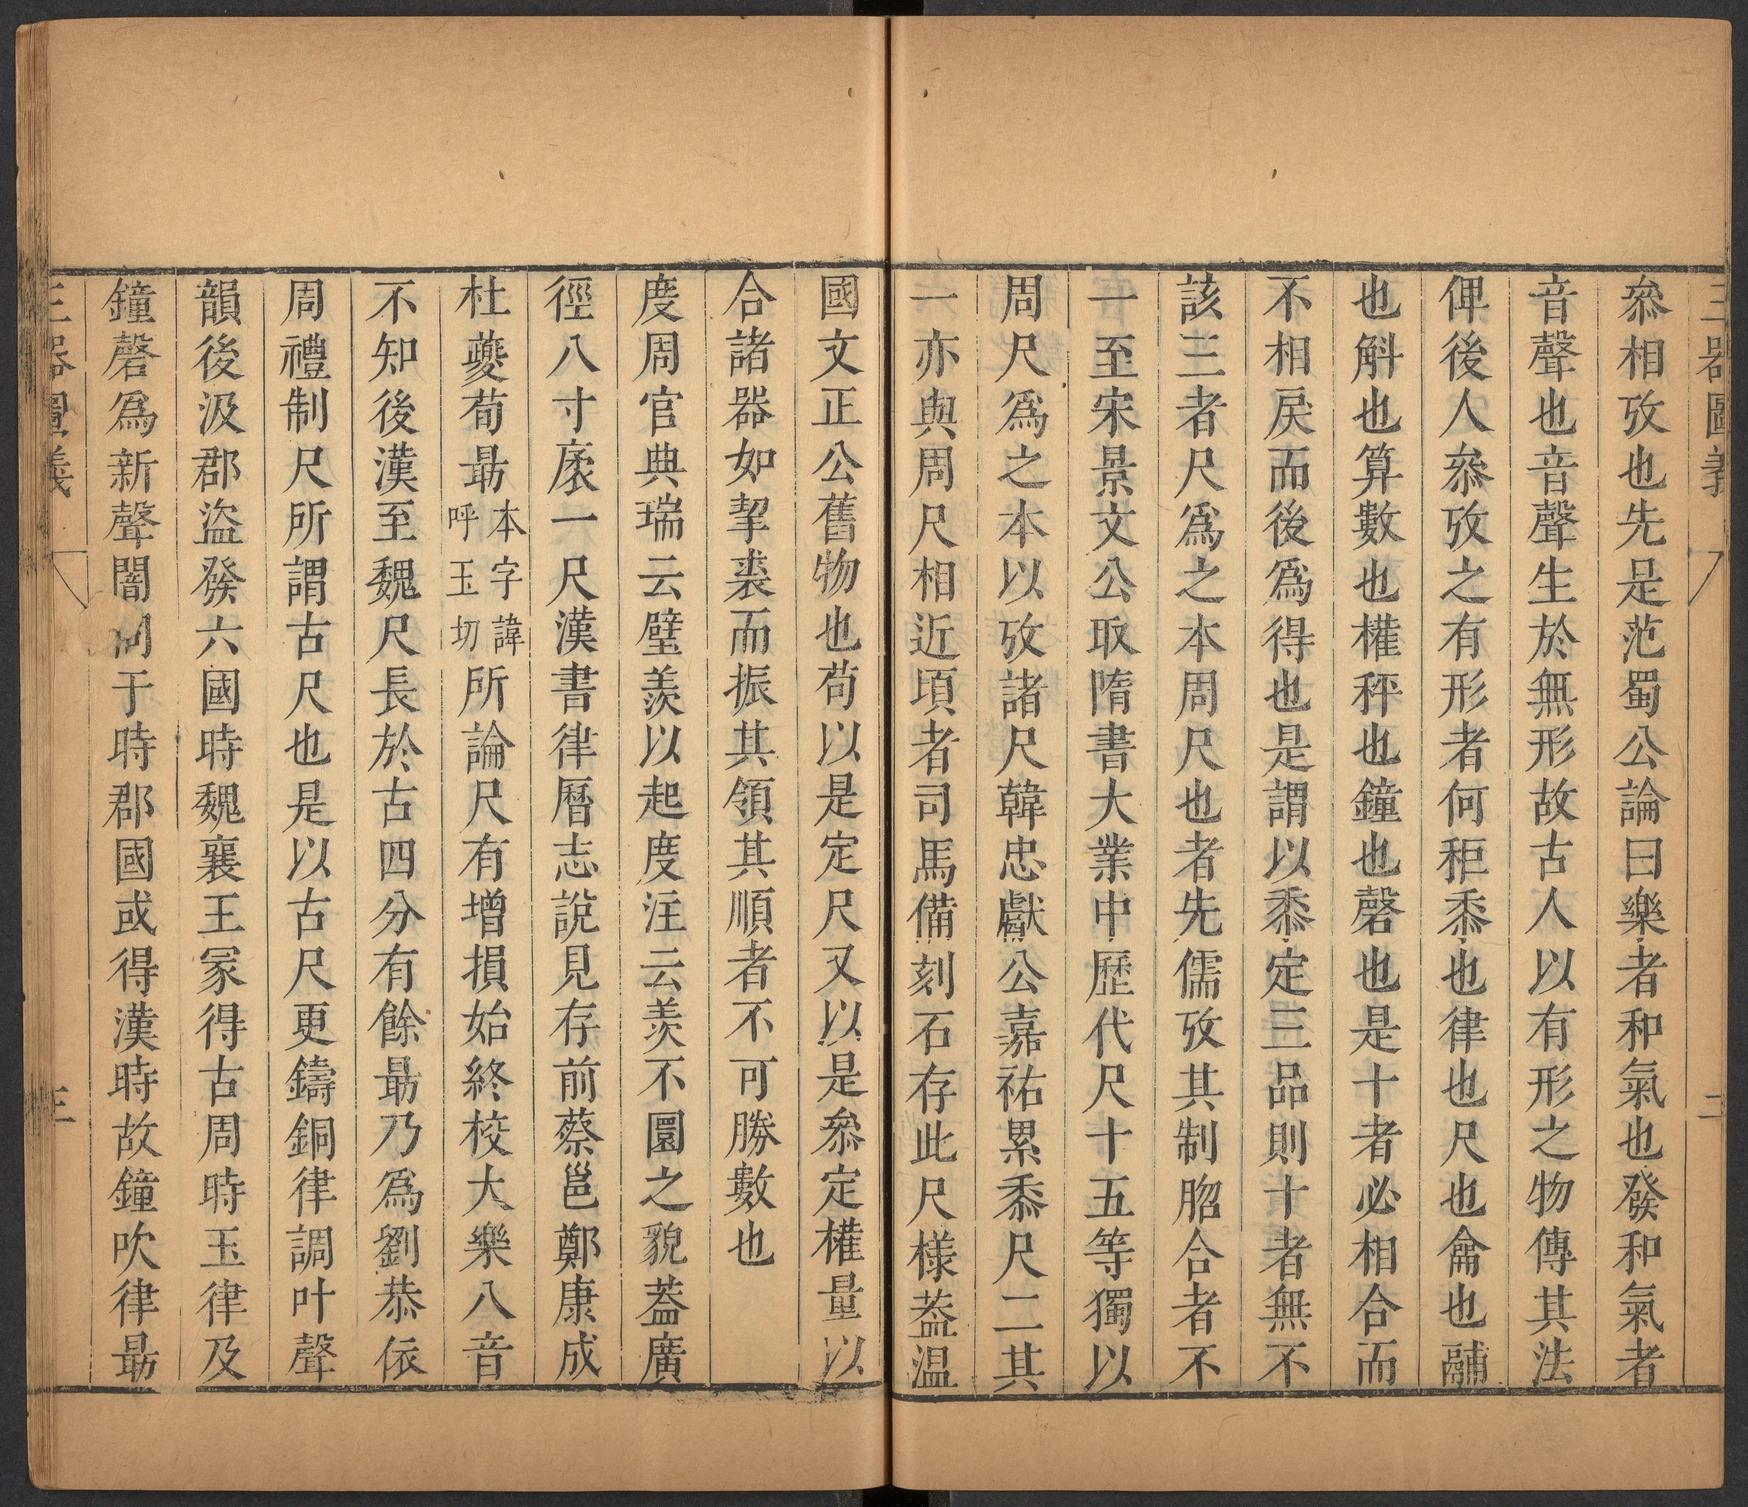 三器圖義 二
叅相攷也先是范蜀公論曰樂者和氣也發和氣者
音聲也音聲生於無形故古人以有形之物傳其法
俾後人叅攷之有形者何秬黍也律也尺也龠也鬴
也斛也算數也權秤也鐘也磬也是十者必相合而
不相戾而後爲得也是謂以黍定三品則十者無不
該三者尺爲之本周尺也者先儒攷其制脗合者不
一至宋景文公取隋書大業中歷代尺十五等獨以
周尺爲之本以攷諸尺韓忠獻公嘉祐累黍尺二其
一亦與周尺相近頃者司馬備刻石存此尺樣葢温
國文正公舊物也苟以是定尺又以是叅定權量以
合諸器如挈裘而振其領其順者不可勝數也
度周官典瑞云璧羨以起度注云羨不圜之貌葢廣
徑八寸袤一尺漢書律曆志說見存前蔡邕鄭康成
杜夔荀朂本字諱呼玉切所論尺有增損始終校大樂八音
不知後漢至魏尺長於古四分有餘朂乃爲劉恭依
周禮制尺所謂古尺也是以古尺更鑄銅律調叶聲
韻後汲郡盜發六國時魏襄王冢得古周時玉律及
鐘磬爲新聲闇同于時郡國或得漢時故鐘吹律朂
三器圖義 三